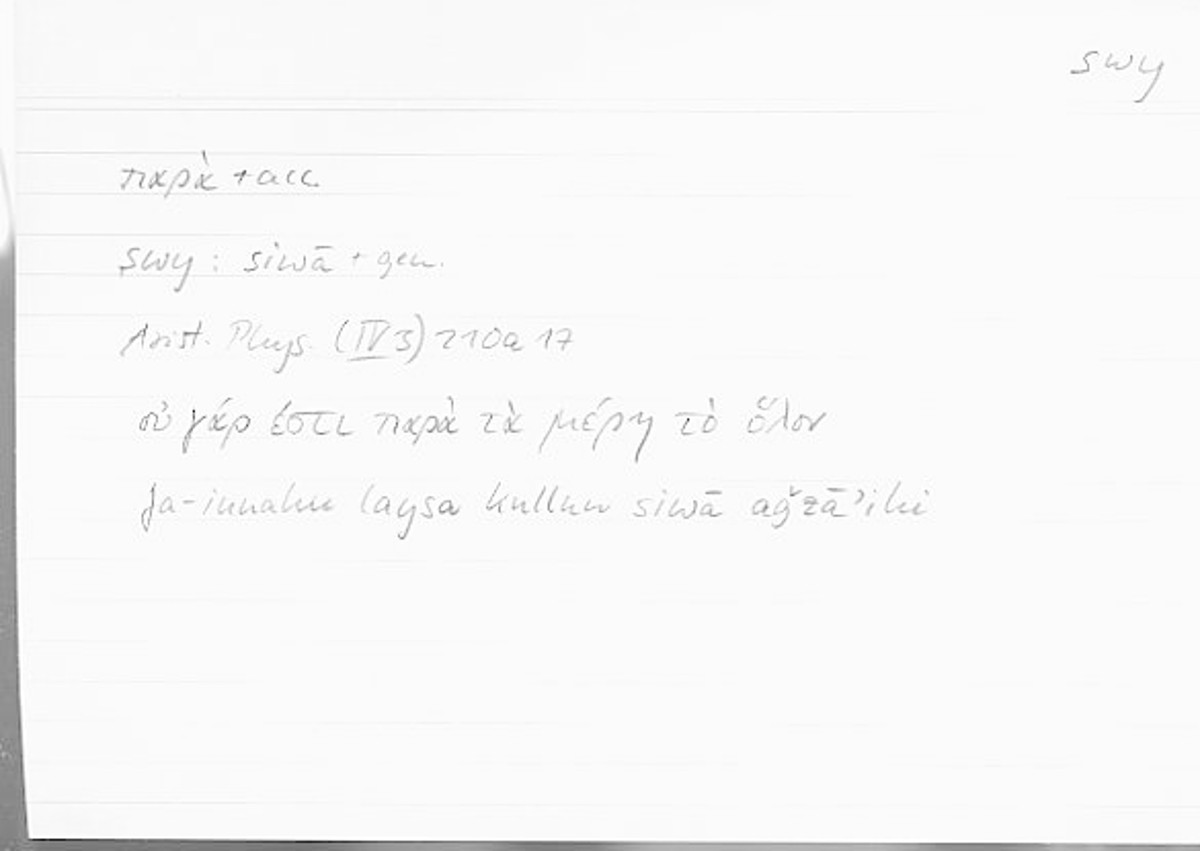 swy
παρὰ + acc.
swy : siwā + gen.
Arist. Phys. (IV 3) 210a 17
οὐ γάρ ἐστι παρὰ τὰ μέρη τὸ ὅλον
fa-innahu laysa kullun siwā aǧzāʾihi